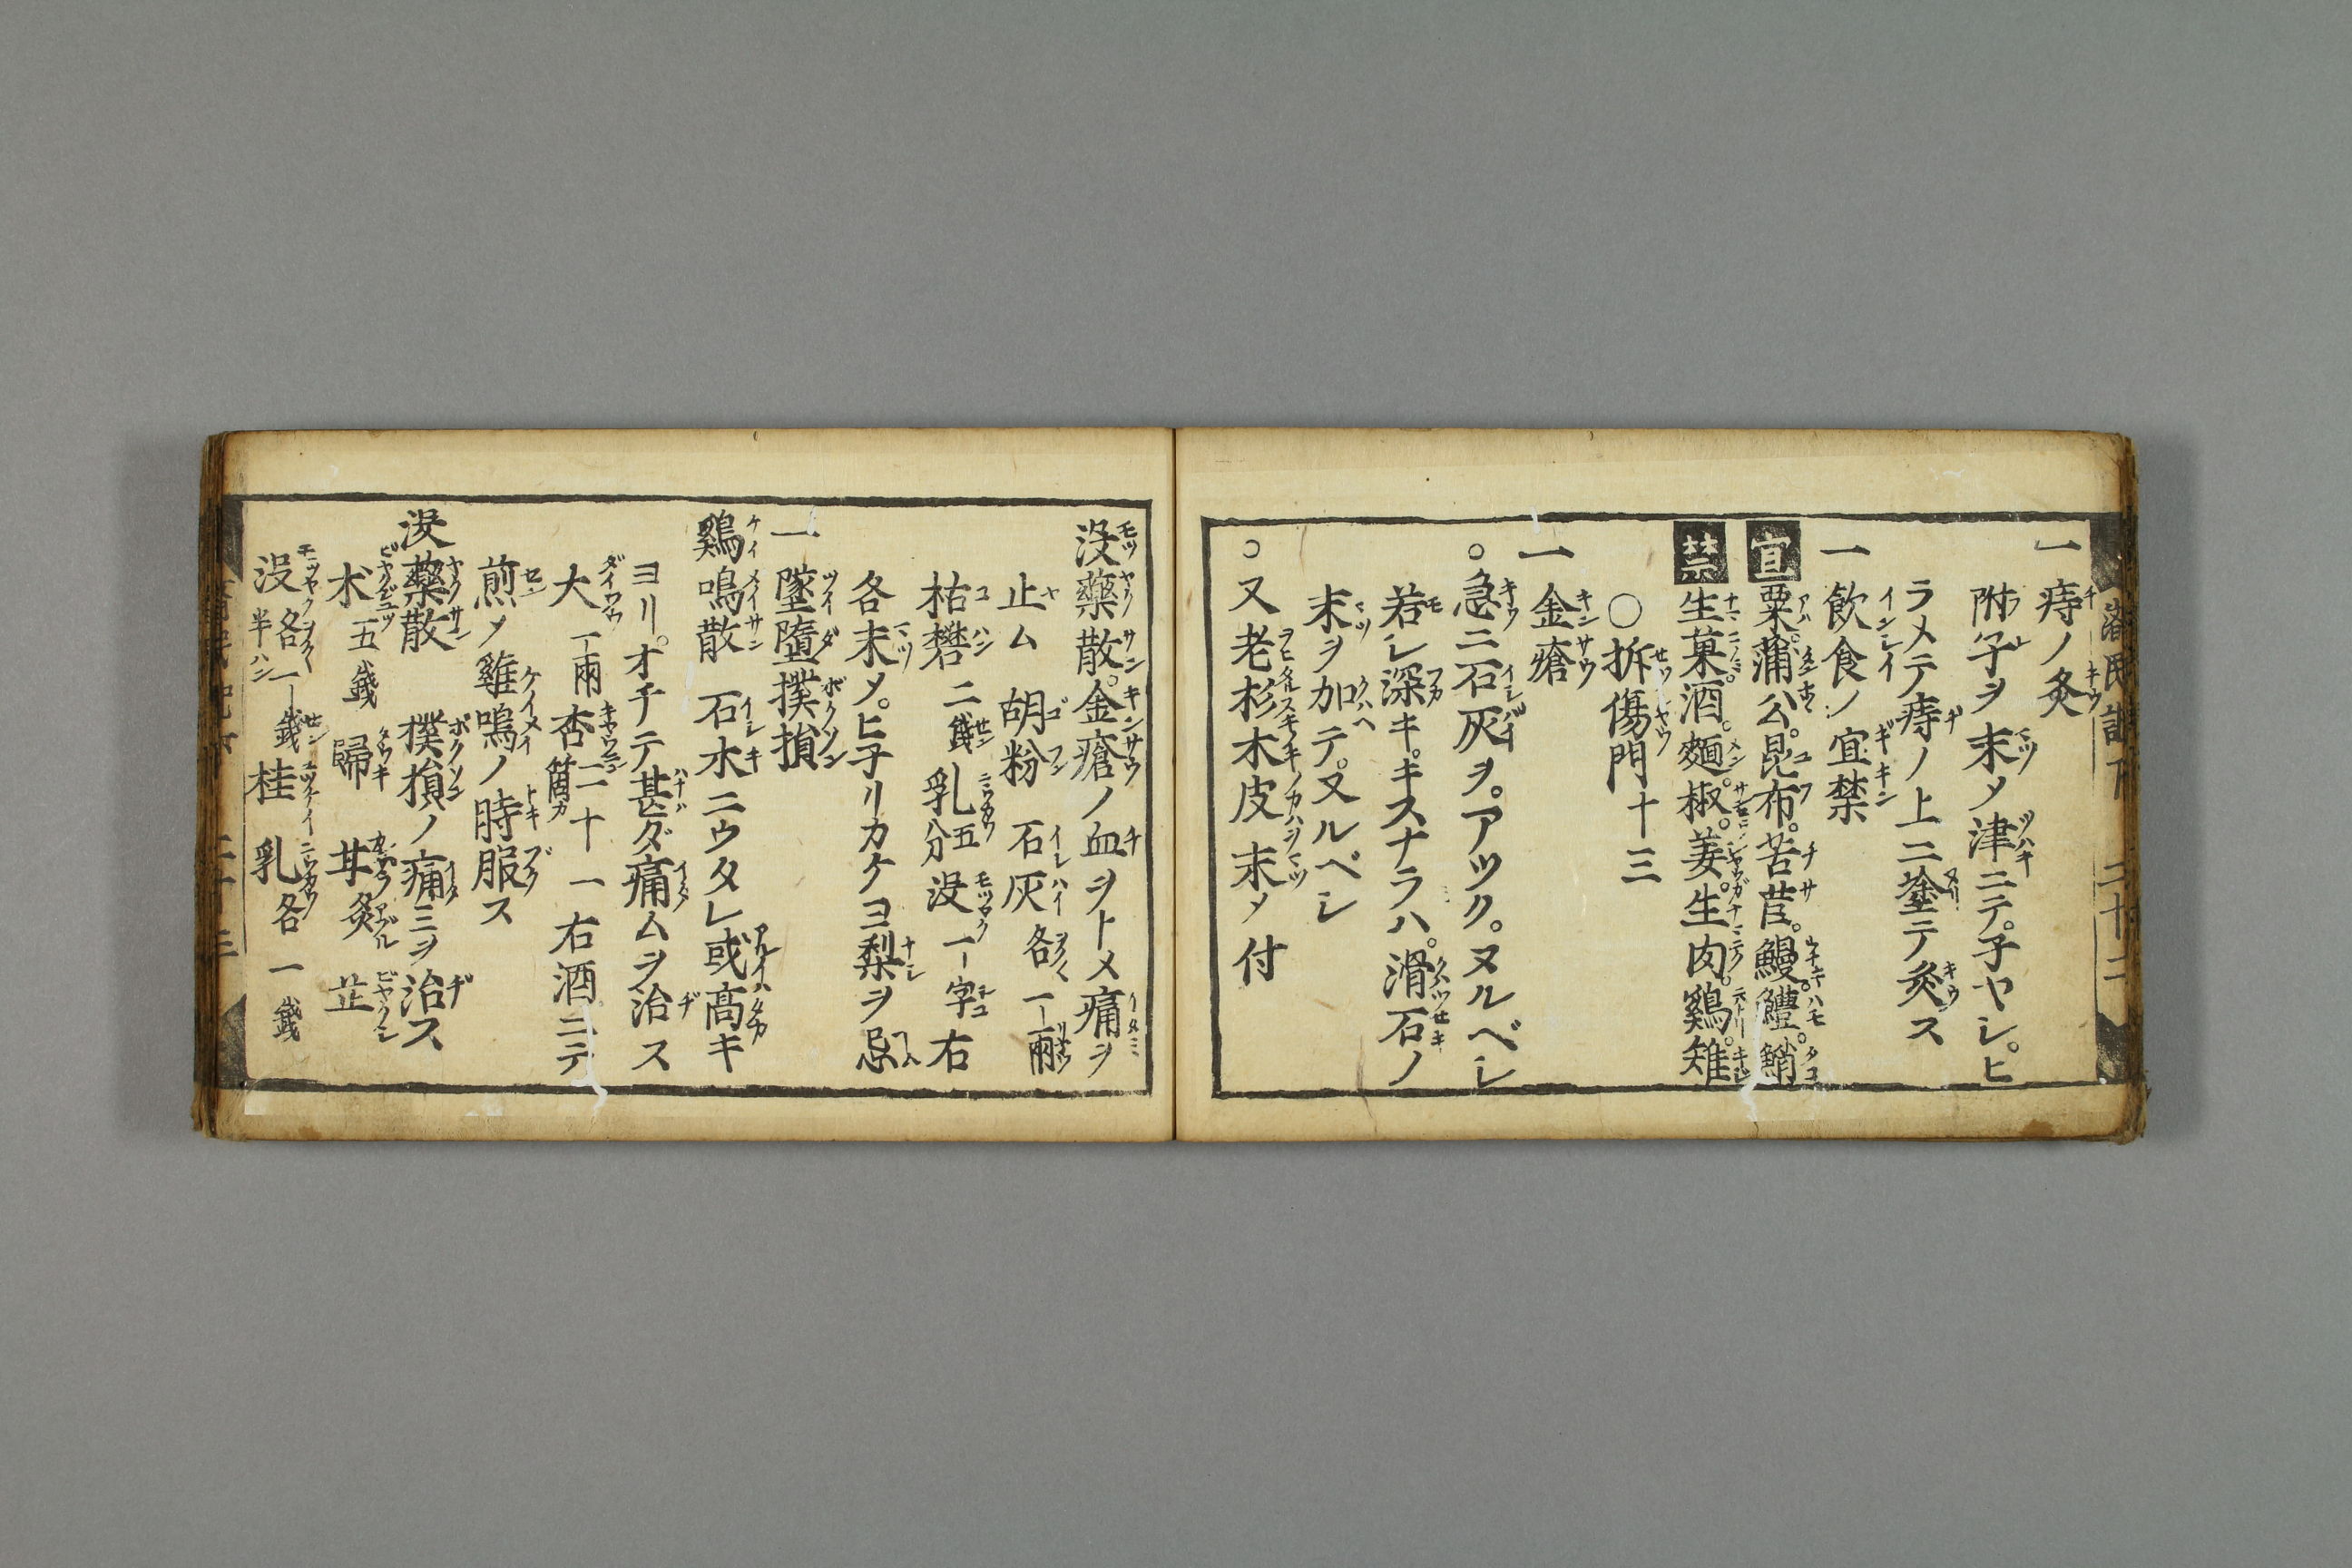 一痔ノ灸
附子ヲ末メ津ニテ。子ヤシ。ヒ
ラメテ痔ノ上ニ塗テ灸ス
一飲食ノ宜禁
宜粟。蒲公。昆布。苦苣。鰻。鱧。鮹
禁生菓。酒。麵。椒。姜。生肉。鷄。雉
〇拆傷門十三
一金瘡
〇急ニ石灰ヲ。アツク。ヌルベシ
若シ深キ。キスナラハ。滑石ノ
末ヲ加テ。又ルベシ
〇又老杉木皮末メ付
没藥散。金瘡ノ血ヲトメ痛ヲ
止ム 胡粉 石灰各一兩
枯礬二錢乳五分没一字右
各末メ。ヒ子リカケヨ梨ヲ忌
一墜墮撲損
鷄鳴散 石木ニウタレ或高キ
ヨリ。オチテ甚ダ痛ムヲ治ス
大一兩杏二十一箇右酒ニテ
煎メ雞鳴ノ時服ス
没藥散 撲損ノ痛ミヲ治ス
朮五錢 歸 甘炙 芷
没各一錢半桂 乳各一錢